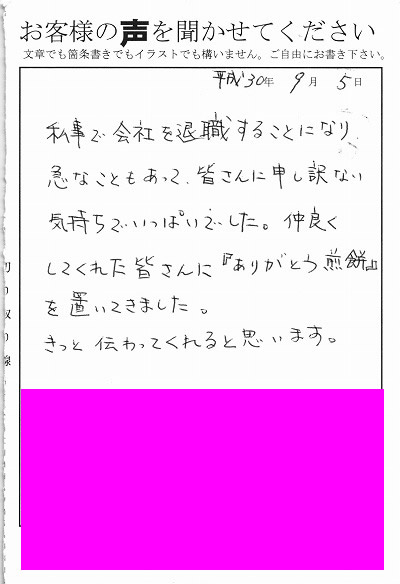 お客様の声を聞かせてください
文章でも箇条書きでもイラストでも構いません。ご自由にお書き下さい。
平成30年 9月 5日
私事で会社を退職することになり
急なこともあって、皆さんに申し訳ない
気持ちでいっぱいでした。仲良く
してくれた皆さんに『ありがとう煎餅』
を置いてきました。
きっと伝わってくれると思います。